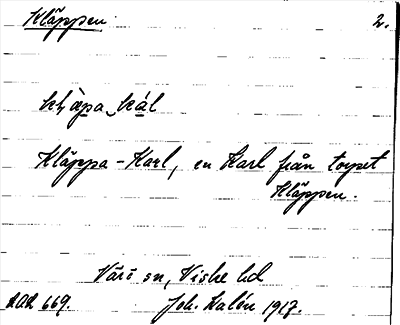 Kläppen. 2.
kḷæpa kál
Kläppa-Karl, en Karl från torpet
Kläppen.
Värö sn, Viske hd
Joh. Kalén 1917.
669.